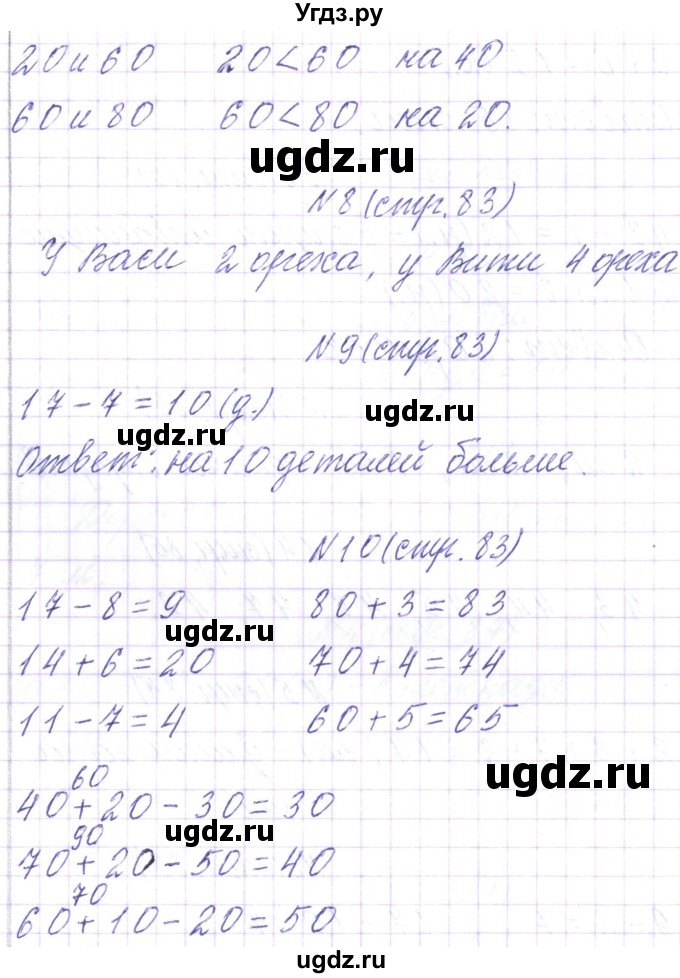 Угдз.ру
20 и 60 20<60 на 40
60 и 80 60<80 на 20.
ugdz.ru
N8 (стр. 83)
У Васи 2 ореха, у Вити 4 ореха
N9 (стр. 83)
17-7=10 (д.)
ugdz.ru
ugdz.ru
Ответ: на 10 деталей больше.
N10 (стр. 83)
17-8=9 80+3=83
ugdz.ru
14+6=20 70+4=74
11-7=4 60+5=65
ugdz.ru
60
40+20-30=30
ugdz.ru
90
70+20-50=40
70
60+10-20=50
ugdz.ru